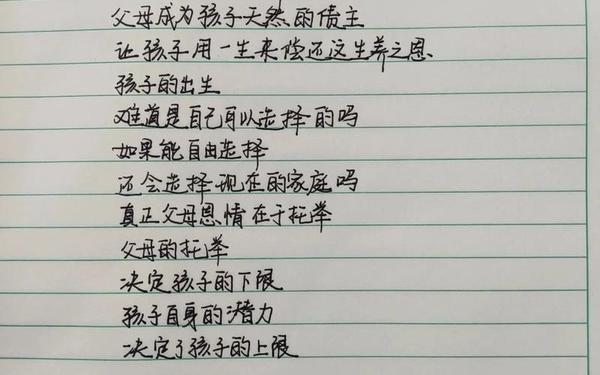 父母成为孩子天然的债主
让孩子用一生来偿还这生养之恩
孩子的出生
难道是自己可以选择的吗
如果能自由选择
还会选择现在的家庭吗
真正父母恩情在于托举
父母的托举
决定孩子的下限
孩子自身的潜力
决定了孩子的上限